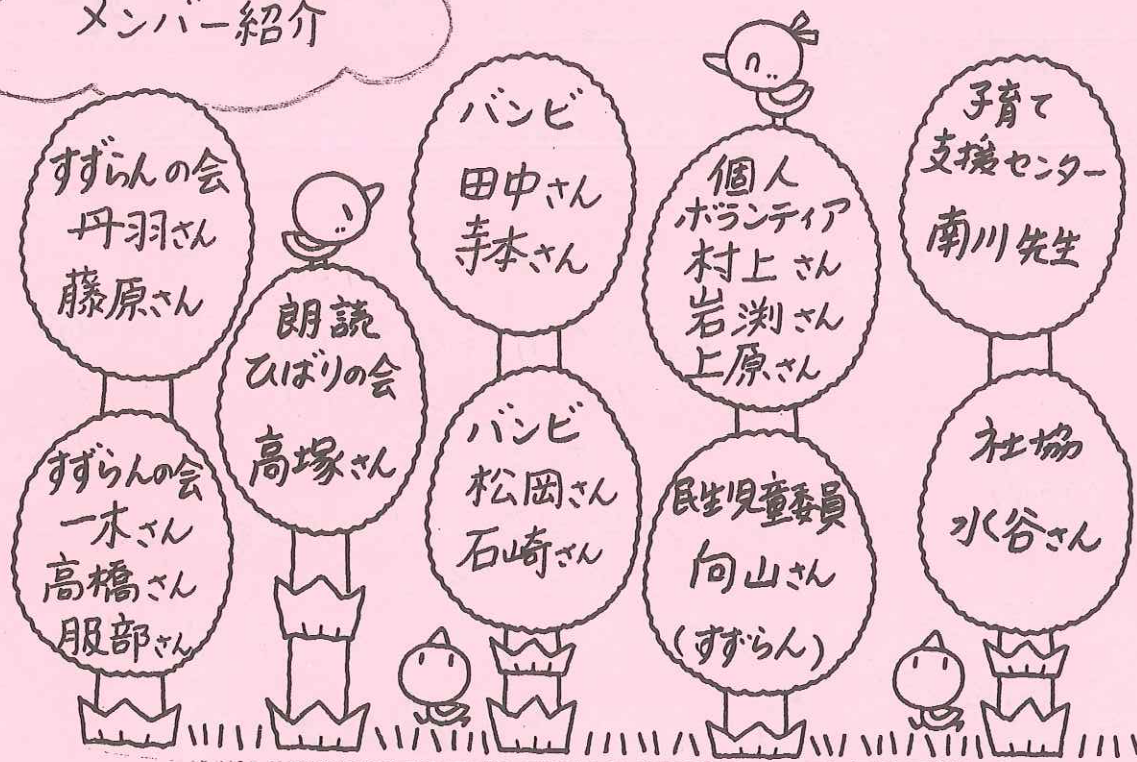 メンバー紹介
すずらんの会
丹羽さん
藤原さん
すずらんの会
一木さん
高橋さん
服部さん
朗読
ひばりの会
高塚さん
バンビ
田中さん
寺本さん
バンビ
松岡さん
石崎さん
個人
ボランティア
村上さん
岩渕さん
上原さん
民生児童委員
向山さん
(すずらん)
子育て
支援センター
南川先生
社協
水谷さん